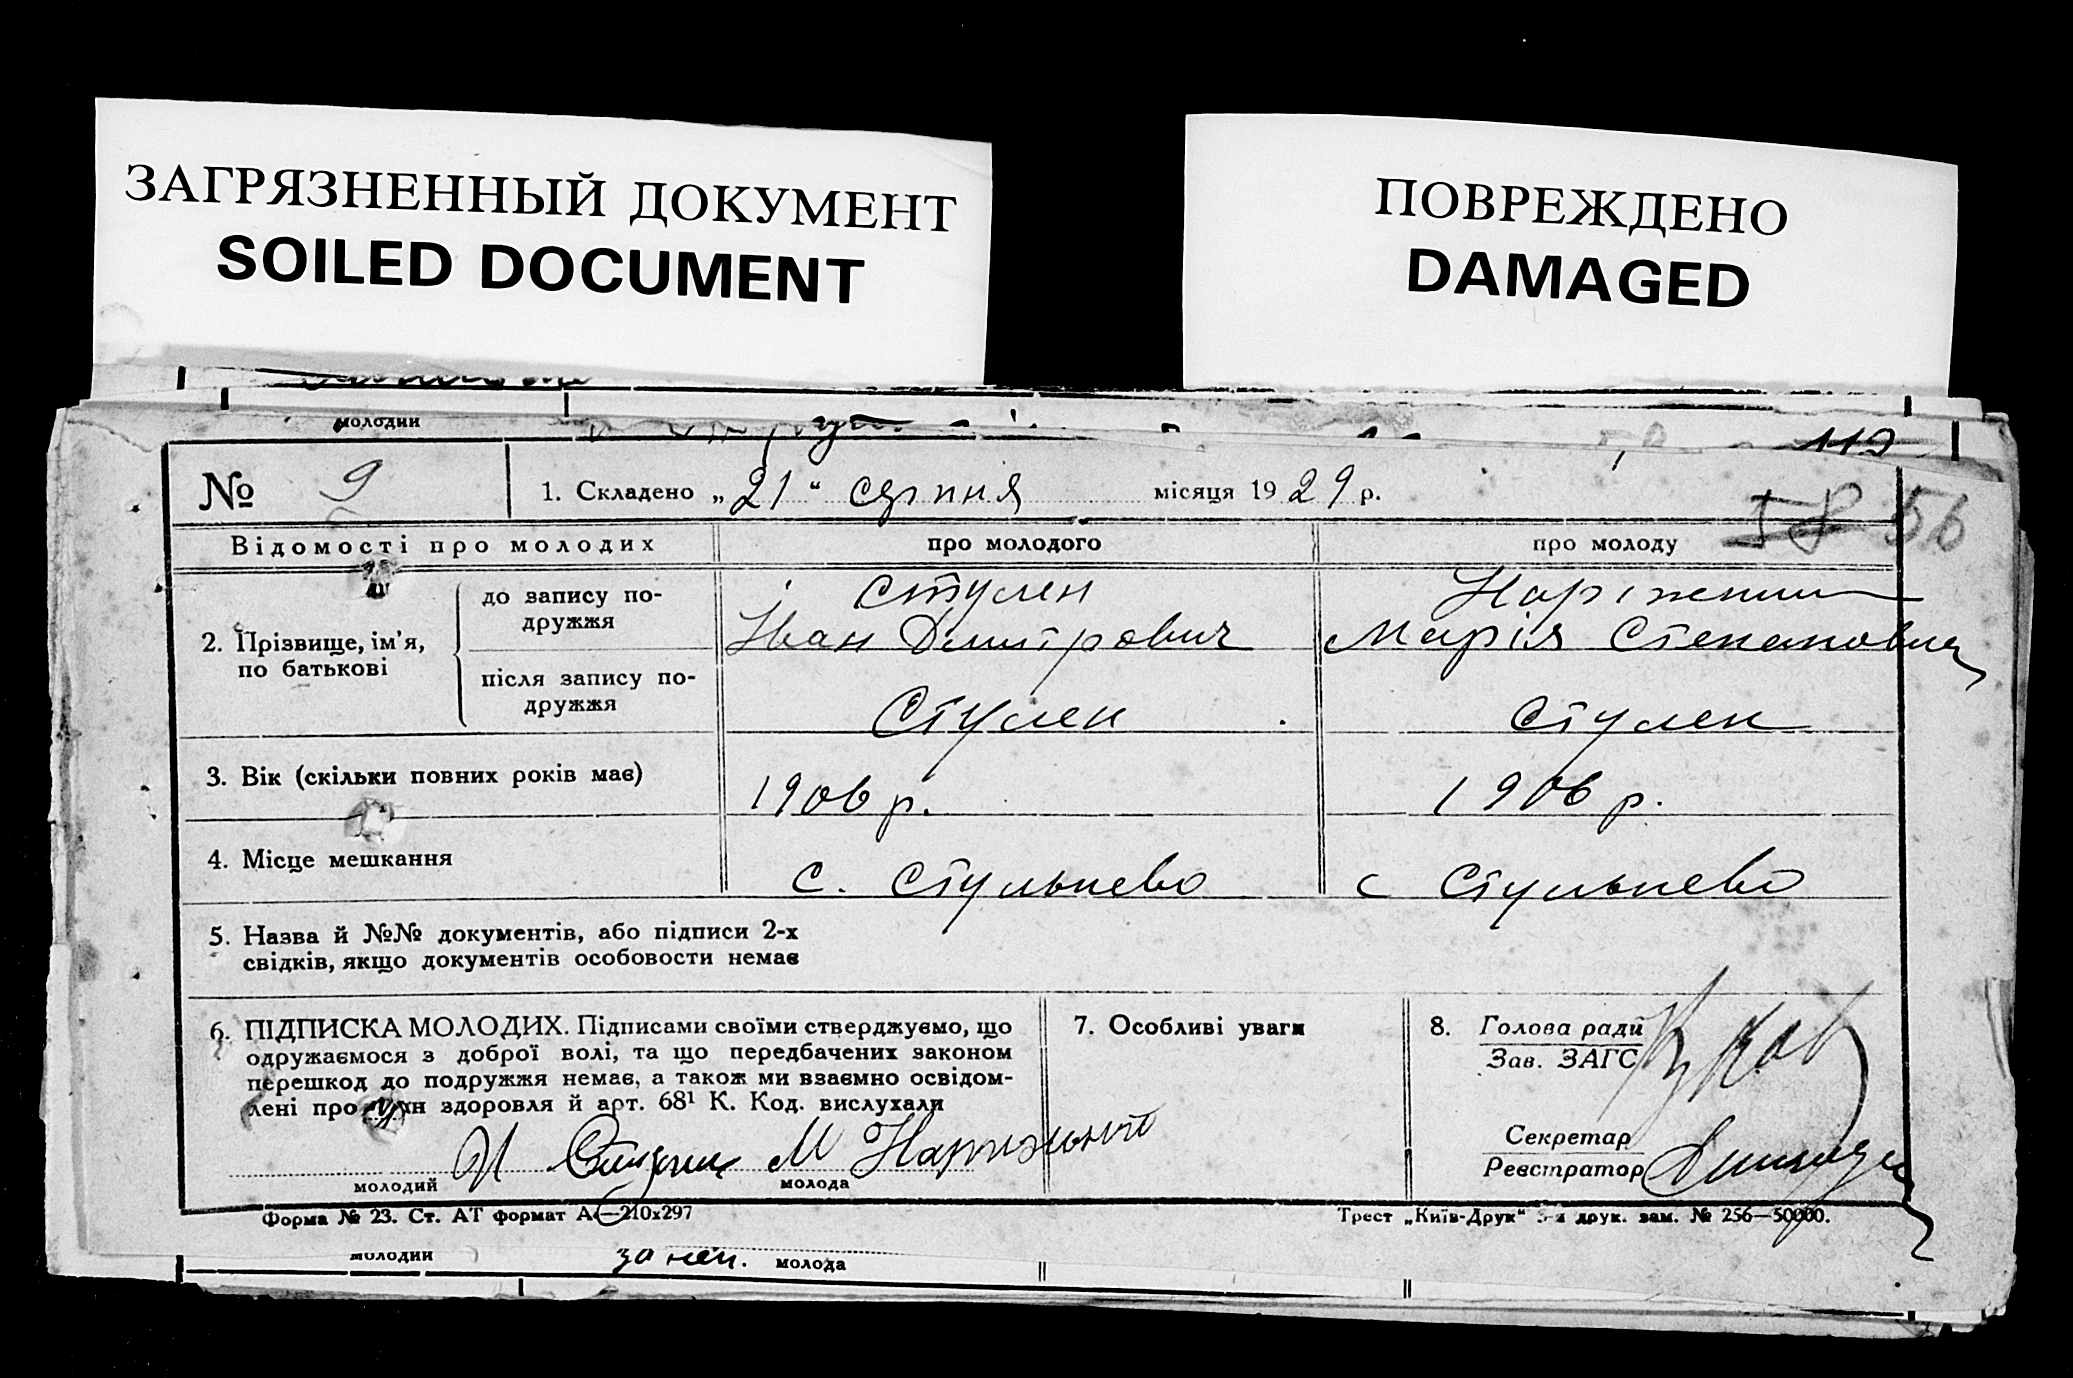 ЗАГРЯЗНЕННЫЙ ДОКУМЕНТ
SOILED DOCUMENT
ПОВРЕЖДЕНО
DAMAGED
молодий
112
№ 9
1. Складено „21“ серпня місяця 1929 р.
58 56
Відомості про молодих
про молодого
про молоду
2. Прізвище, ім’я, по батькові
до запису по-
дружжя
Стулен
Іван Дмитрович
Марія Степановна
після запису по-
дружжя
Стулен
Стулен
3. Вік (скільки повних років має)
1906 р.
1906 р.
4. Місце мешкання
с. Стульнево
с Стульнево
5. Назва й №№ документів, або підписи 2-х
свідків, якщо документів особовости немає
6. ПІДПИСКА МОЛОДИХ. Підписами своїми стверджуємо, що
одружаємося з доброї волі, та що передбачених законом
перешкод до подружжя немає, а також ми взаємно освідом-
лені про стан здоровля й арт. 68¹ К. Код. вислухали
И М
молодий
молода
7. Особливі уваги
8. Голова ради
Зав. ЗАГС
Секретар
Реєстратор
Форма № 23. Ст. АТ формат А4—210x297
Трест „Київ-Друк“ 3-я друк. зам. № 256—50000.
молодий
за неп.
молода